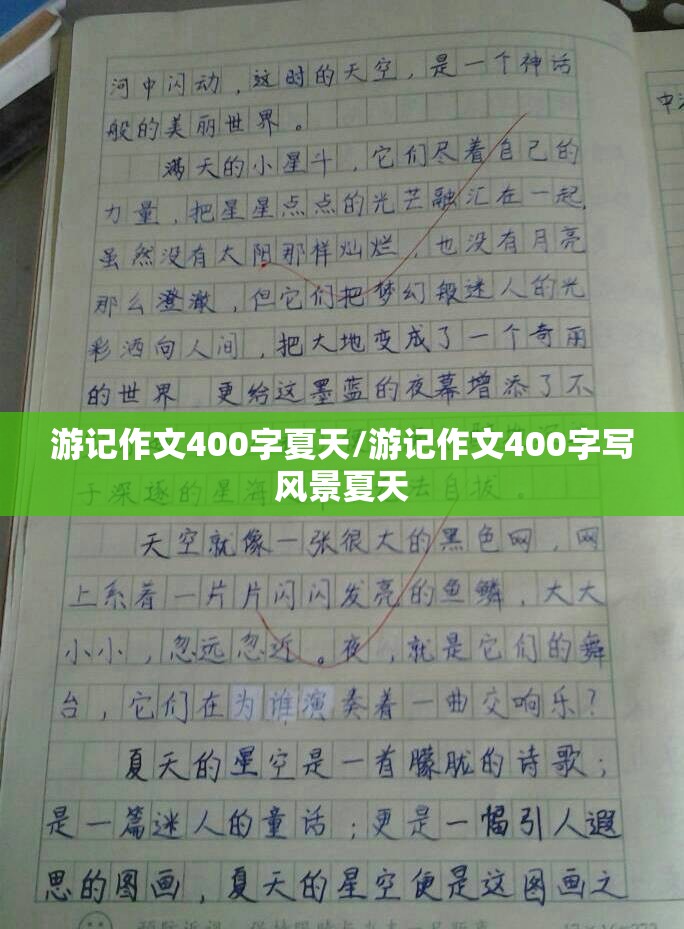 河中闪动，这时的天空，是一个神话
般的美丽世界。
满天的小星斗，它们尽着自己的
力量，把星星点点的光芒融汇在一起，
虽然没有太阳那样灿烂，也没有月亮
那么澄澈，但它们把梦幻般迷人的光
彩洒向人间，把大地变成了一个奇丽
的世界 更给这墨蓝的夜幕增添了不
游记作文400字夏天/游记作文400字写
风景夏天
于深邃的星海 去自拔。
天空就像一张很大的黑色网，网
上系着一片片闪闪发亮的鱼鳞，大大
小小，忽远忽近。夜，就是它们的舞
台，它们在为谁演奏着一曲交响乐？
夏天的星空是一首朦胧的诗歌；
是一篇迷人的童话；更是一幅引人遐
思的图画，夏天的星空便是这图画之
中